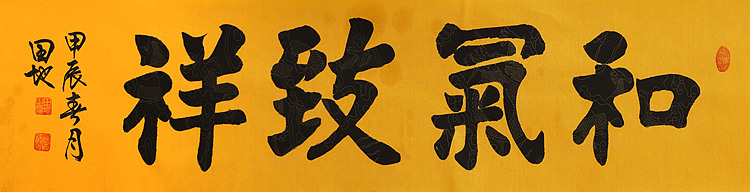 和氣致祥
甲辰春月
田地